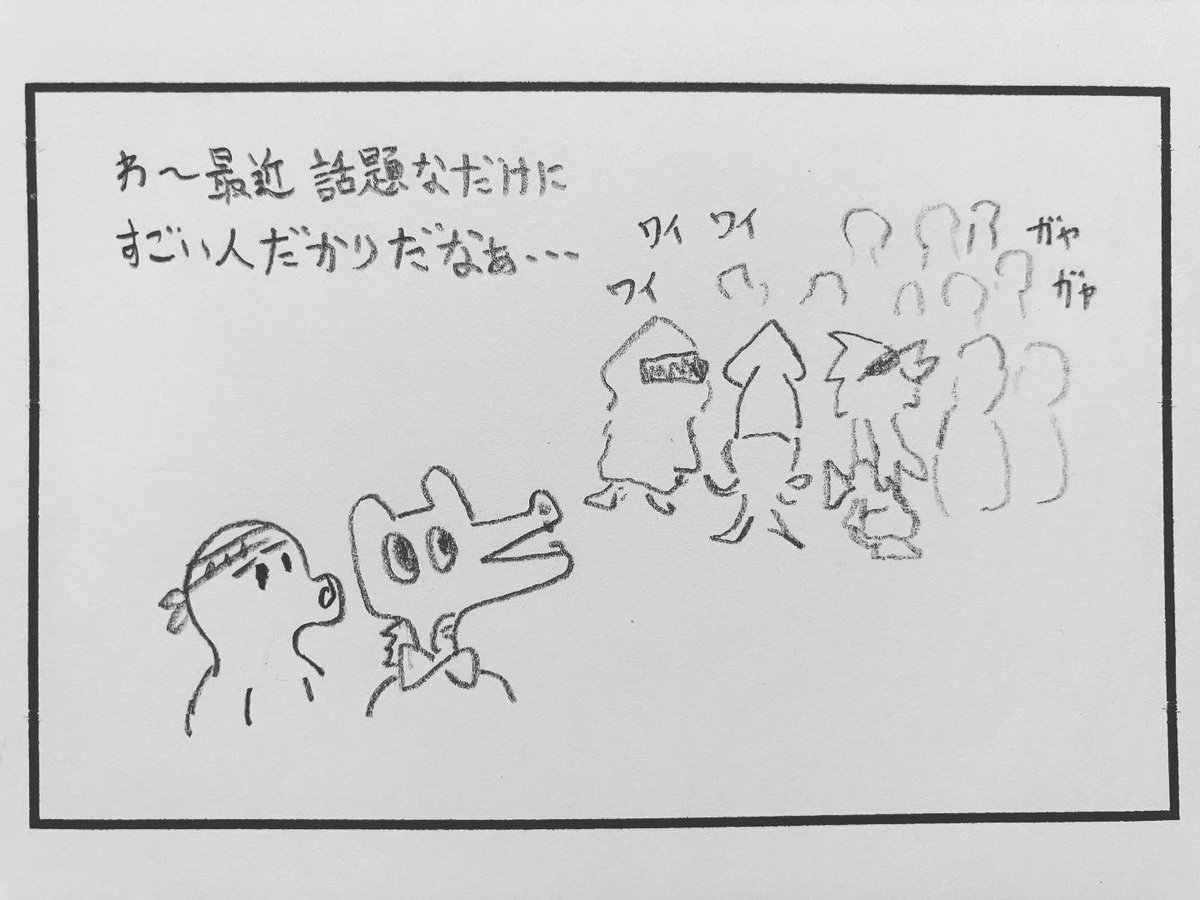 わ〜最近 話題なだけに
すごい人だかりだなぁ・・・
ワイ ワイ
ワイ
ガヤ
ガヤ